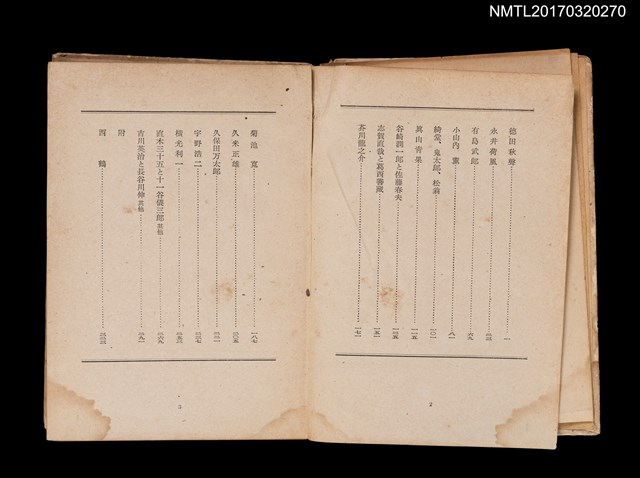 NMTL20170320270
徳田秋聲……一
永井荷風……三三
有島武郎……六九
小山内薫……八一
綺堂、鬼太郎、松翁……一〇一
眞山青果……一一五
谷崎潤一郎と佐藤春夫……一三五
志賀直哉と葛西善藏……一五一
芥川龍之介……一七一
2
菊池寛……一八七
久米正雄……二〇五
久保田万太郎……二二一
宇野浩二……二三七
横光利一……二五三
直木三十五と十一谷義三郎 其他……二六九
吉川英治と長谷川伸 其他……二九一
附
西鶴……三三三
3